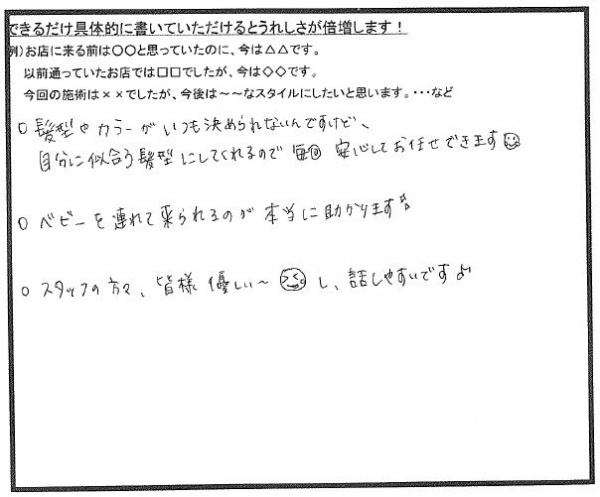 できるだけ具体的に書いていただけるとうれしさが倍増します！
例)お店に来る前は〇〇と思っていたのに、今は△△です。
以前通っていたお店では□□でしたが、今は◇◇です。
今回の施術は××でしたが、今後は～～なスタイルにしたいと思います。・・・など
○ 髪型やカラーがいつも決められないんですけど、
自分に似合う髪型にしてくれるので毎回 安心してお任せできます
○ ベビーを連れて来られるのが本当に助かります
○ スタッフの方々、皆様優しい～ し、話しやすいです♪